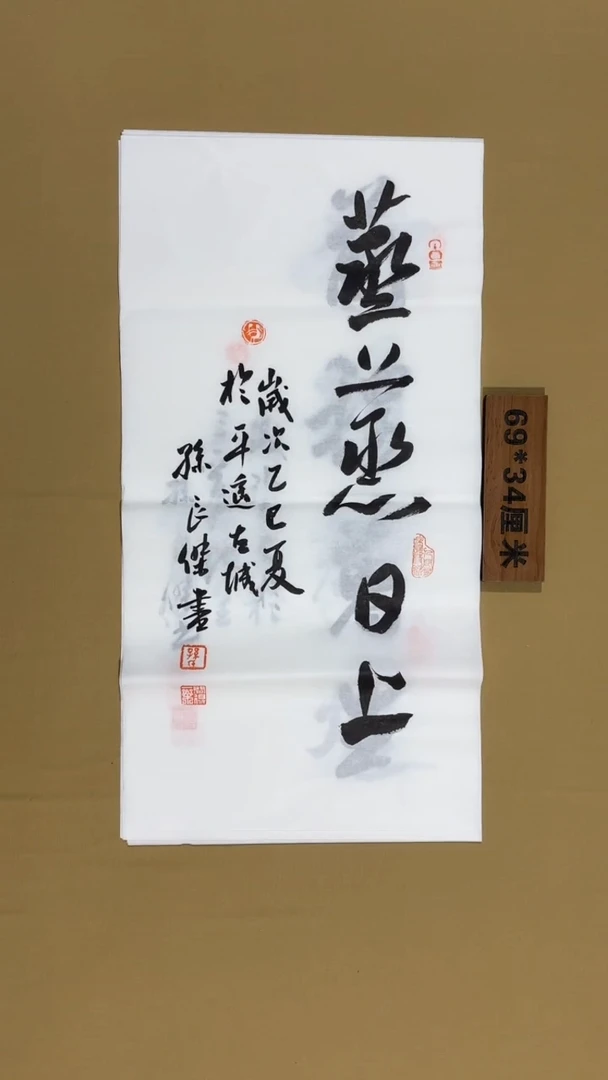 蒸蒸日上
歲次乙巳夏
於平遥古城
孫良傑書
69*34厘米